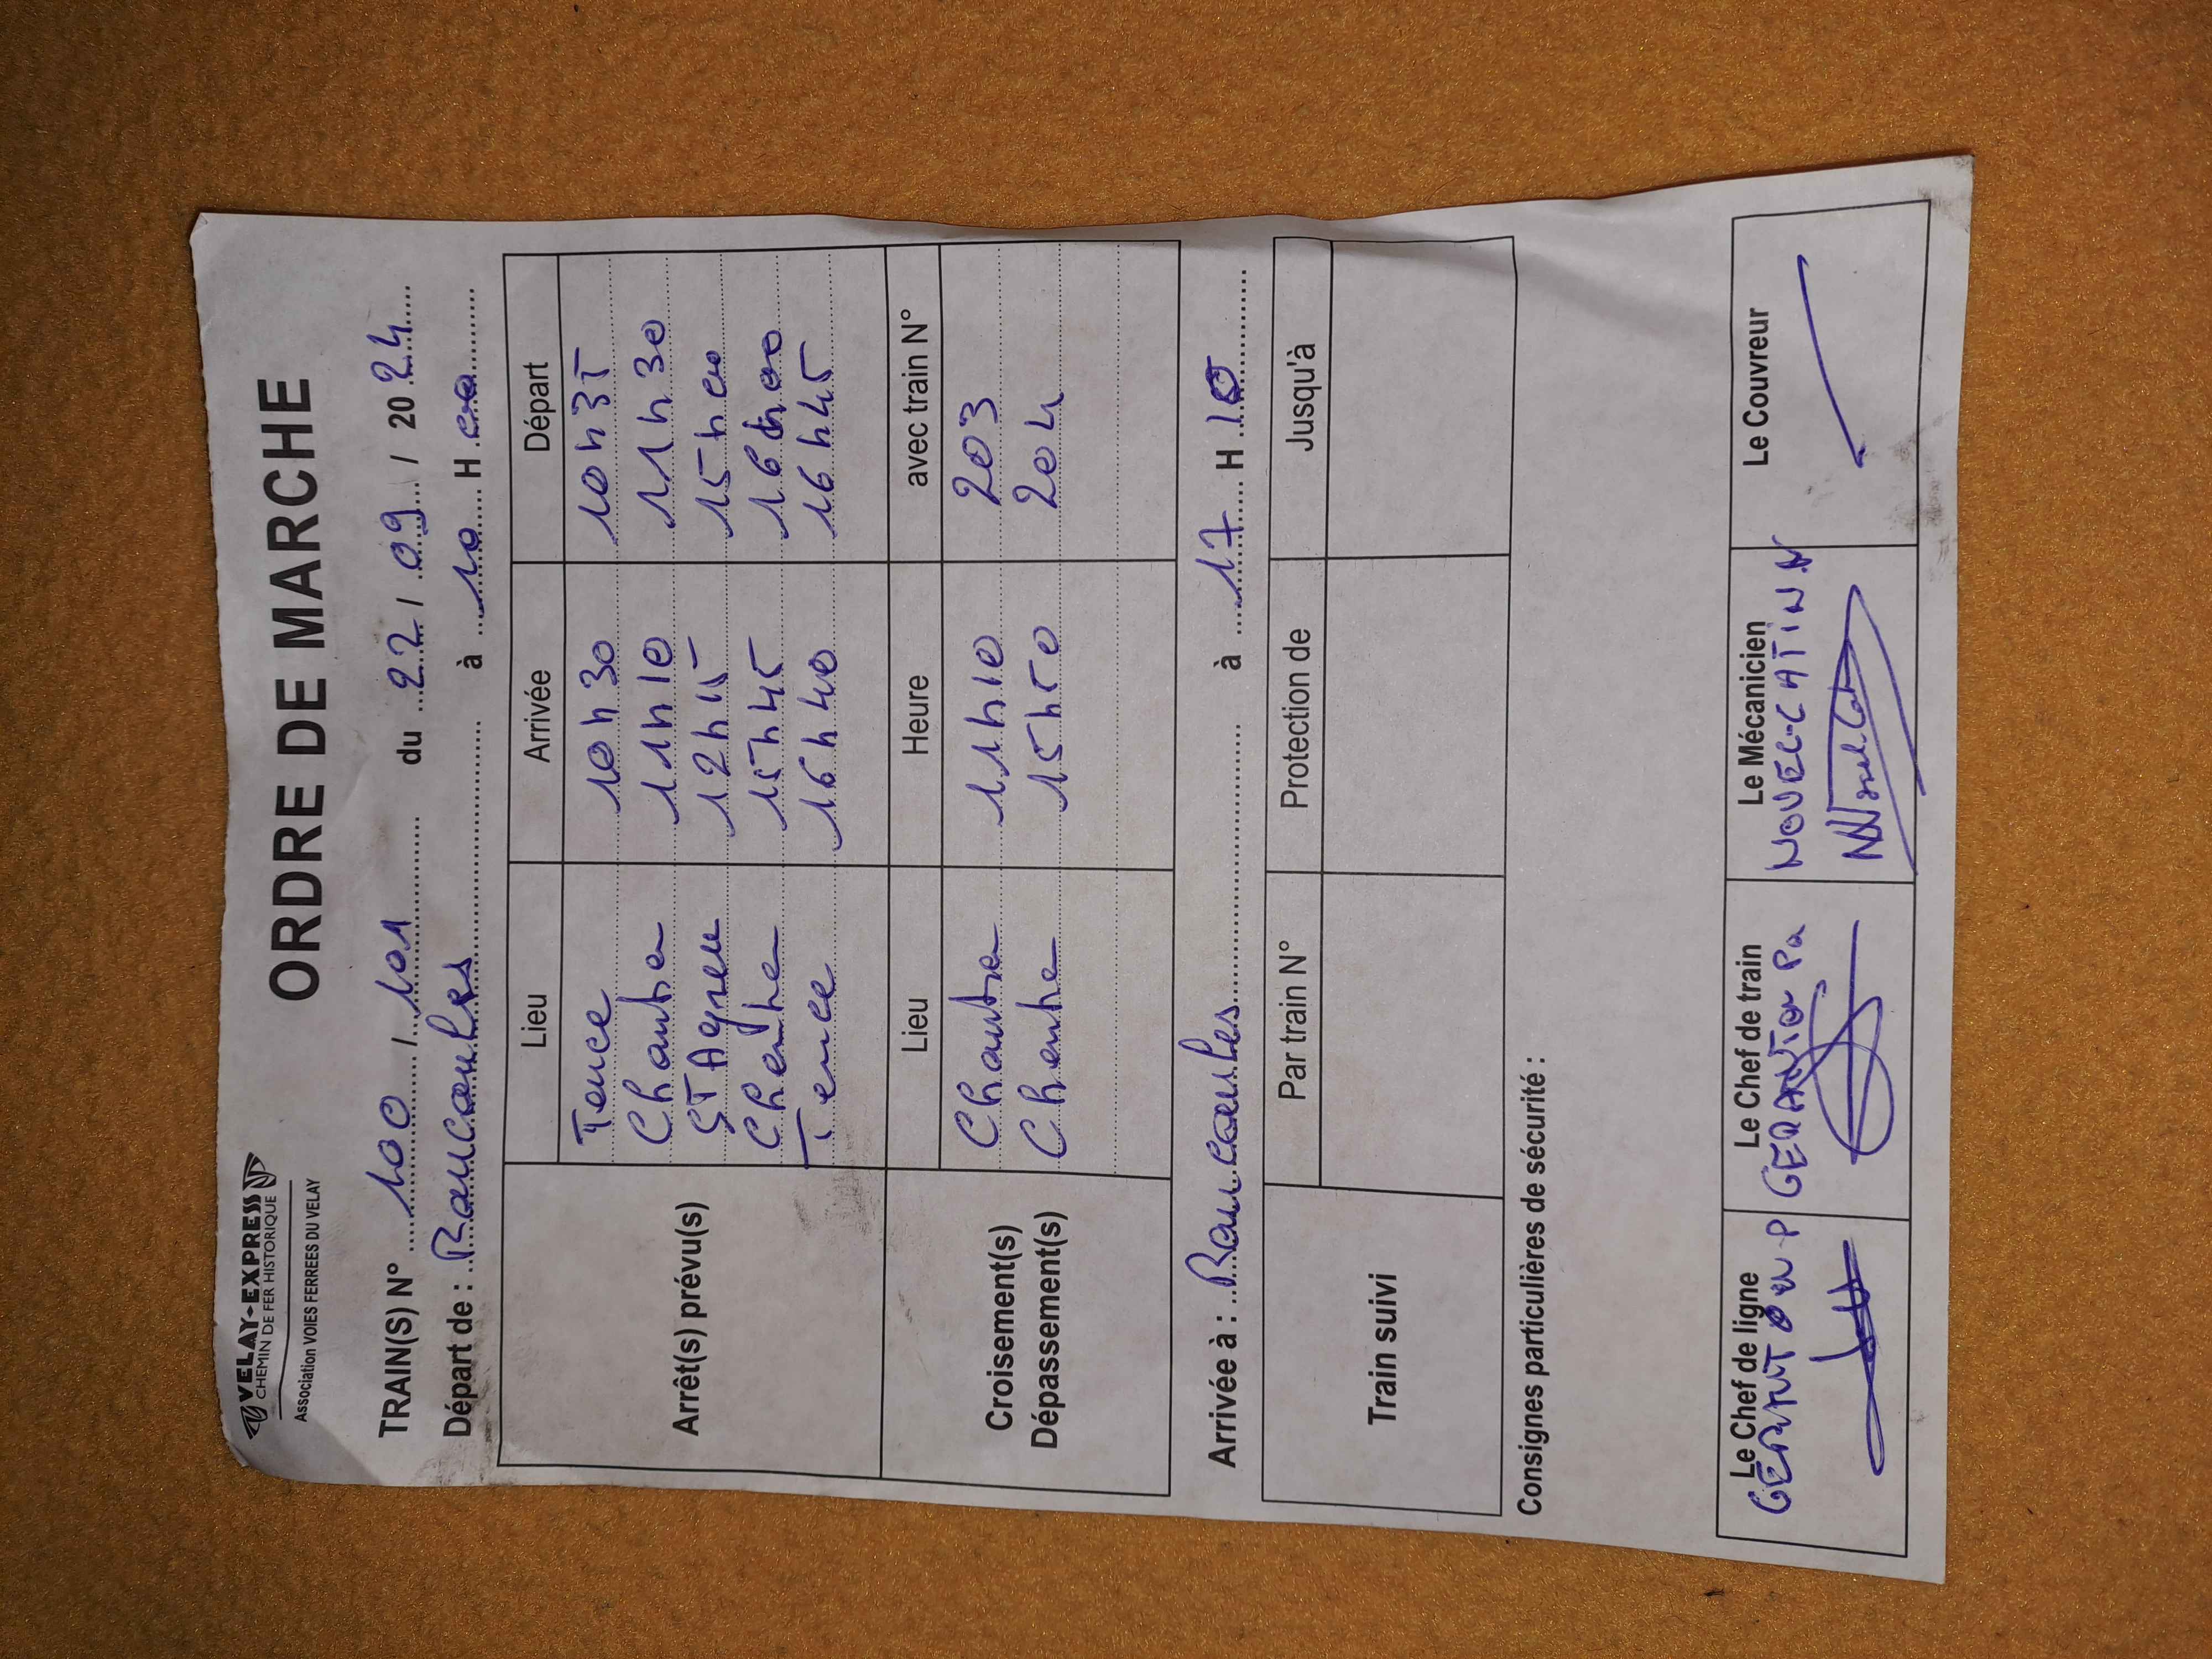 VELAY-EXPRESS
CHEMIN DE FER HISTORIQUE
Association VOIES FERREES DU VELAY
ORDRE DE MARCHE
TRAIN(S) N° 100 / 101 du 22 / 09 / 20 24
Départ de : Raucoules à 10 H 00
Lieu Arrivée Départ
Arrêt(s) prévu(s)
Tence 10h30 10h35
11h10 11h30
ST Agreve 12h15 15h00
15h45 16h00
Tence 16h40 16h45
Lieu Heure avec train N°
Croisement(s)
Dépassement(s)
11h10 203
15h50 204
Arrivée à : Raucoules à 17 H 10
Par train N° Protection de Jusqu'à
Train suivi
Consignes particulières de sécurité :
Le Chef de ligne Le Chef de train Le Mécanicien Le Couvreur
NOUEL-CATIN N